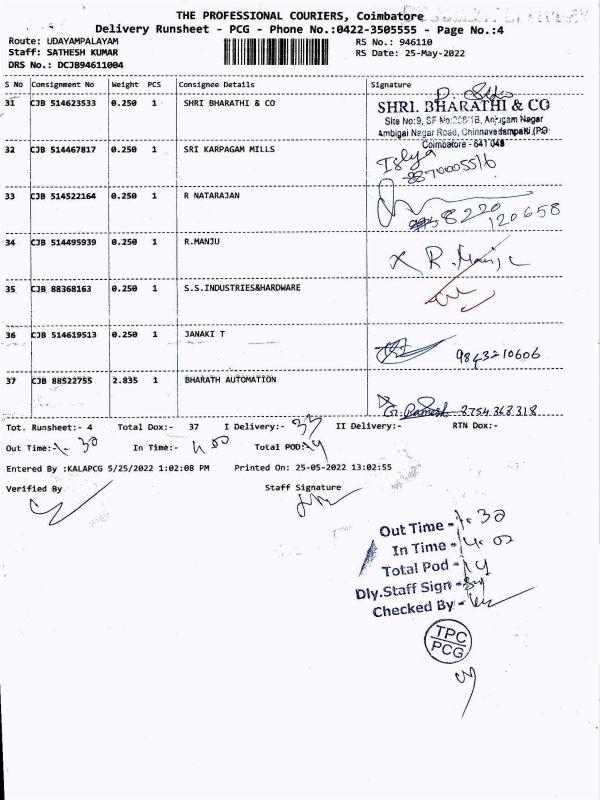 THE PROFESSIONAL COURIERS, Coimbatore
Delivery Runsheet - PCG - Phone No.:0422-3505555 - Page No.:4
Route: UDAYAMPALAYAM RS No.: 946110
Staff: SATHESH KUMAR RS Date: 25-May-2022
DRS No.: DCJB94611004
S No Consignment No Weight PCS Consignee Details Signature
31 CJB 514623533 0.250 1 SHRI BHARATHI & CO
SHRI. BHARATHI & CO
Site No:9, SF No:208/1B, Anjugam Nagar
Ambigai Nagar Road, Chinnavedampatti (PO
Coimbatore - 641 049
32 CJB 514467817 0.250 1 SRI KARPAGAM MILLS
8870005516
33 CJB 514522164 0.250 1 R NATARAJAN
8220
120658
34 CJB 514495939 0.250 1 R.MANJU
35 CJB 88368163 0.250 1 S.S.INDUSTRIES&HARDWARE
36 CJB 514619513 0.250 1 JANAKI T 9843210606
37 CJB 88522755 2.835 1 BHARATH AUTOMATION
8754368318
Tot. Runsheet:- 4 Total Dox:- 37 I Delivery:- 33 II Delivery:- RTN Dox:-
Out Time:- 1-30 In Time:- Total POD: 14
Entered By :KALAPCG 5/25/2022 1:02:08 PM Printed On: 25-05-2022 13:02:55
Verified By Staff Signature
Out Time - 1.30
In Time - 4.00
Total Pod - 14
Dly.Staff Sign -
Checked By -
TPC
PCG